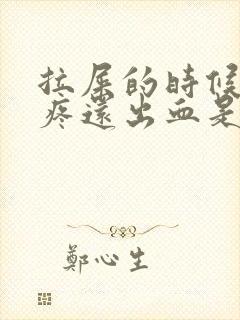 拉屎的時候
疼還出血是
鄭心生